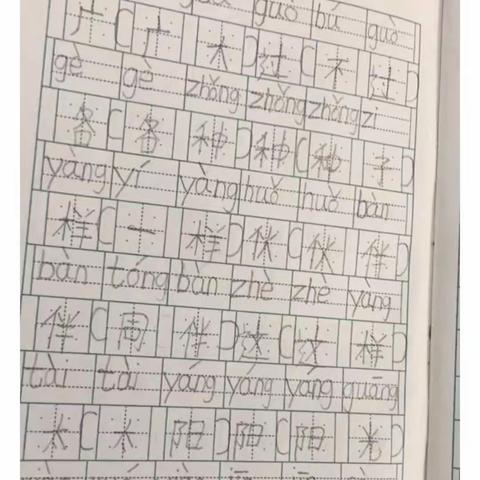 guò bú guò
广(广 过(不 过)
gè gè zhǒng zhǒng zhǒng zi
各(各 种)种(种 子)
yàng yí yàng huǒ huǒ bàn
样(一 样)伙(伙 伴)
bàn tóng bàn zhè zhè yàng
伴(同 伴)这(这 样)
tài tài yáng yáng yáng guāng
太(太 阳)阳(阳 光)